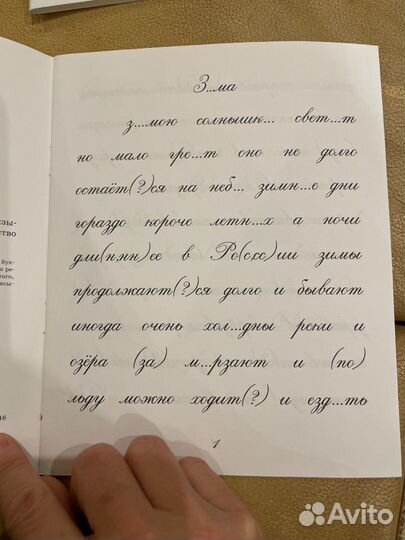 З...ма
з....мою солнышк... свет...т
но мало гре...т оно не долго
остаёт(?)ся на неб... зимн...е дни
гораздо короче летн...х а ночи
дли(н,нн)ее в Ро(с,сс)ии зимы
продолжают(?)ся долго и бывают
иногда очень хол...дны реки и
озёра (за) м...рзают и (по)
льду можно ходит(?) и езд...ть
1
16
Avito